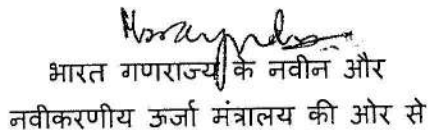 भारत गणराज्य के नवीन और
नवीकरणीय ऊर्जा मंत्रालय की ओर से